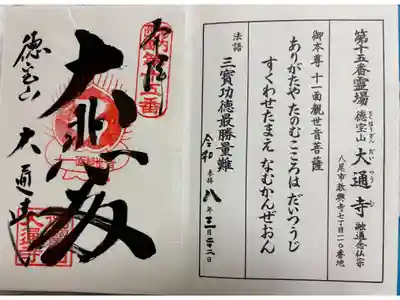 第十五番霊場
徳宝山 大通寺 融通念仏宗
とくほうざん だい つう じ
八尾市教興寺七丁目一一〇番地
御本尊 十一面観世音菩薩
ありがたや たのむこころは だいつうじ
すくわせたまえ なむかんぜおん
法語
三寶功徳最勝量難
令和 奉拝 八年三月二二日
奉拝
大悲殿
徳宝山
大通寺